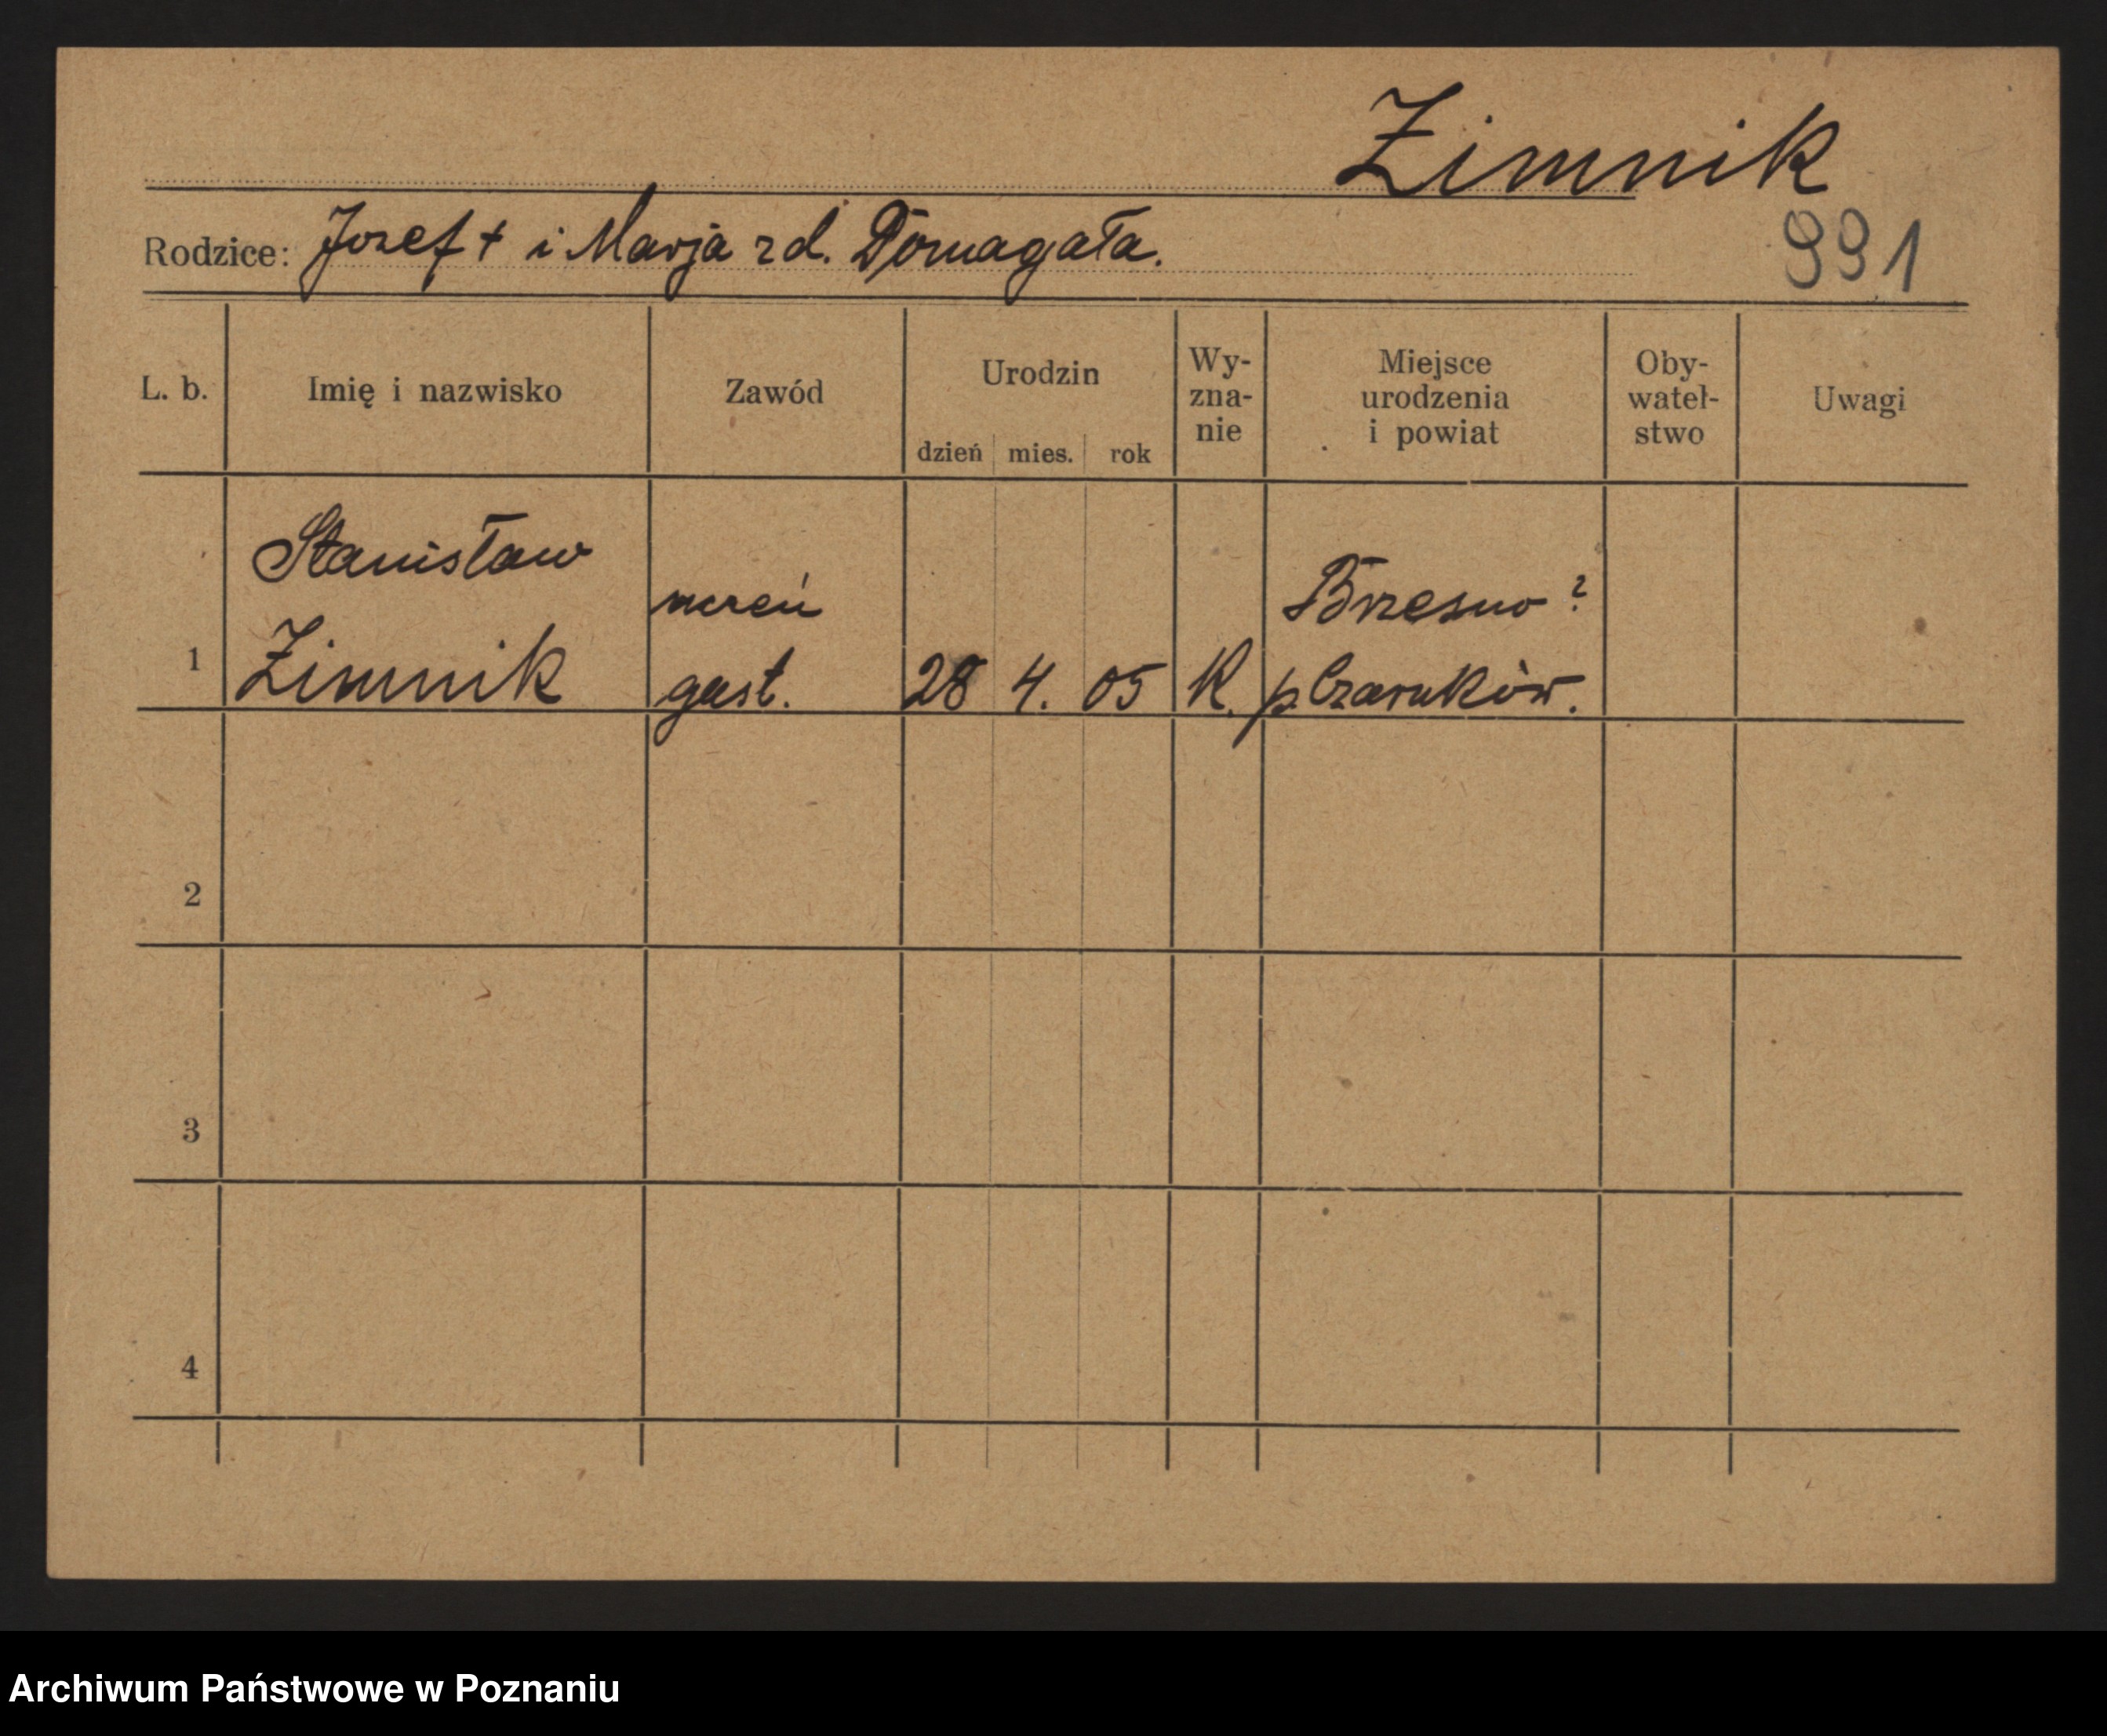 Zimnik
991
Rodzice: Jozef + i Marja rd. Domagała.
L. b. Imię i nazwisko Zawód Urodzin dzień mies. rok Wy-zna-nie Miejsce urodzenia i powiat Oby-wateł-stwo Uwagi
Stanisław uczeń Brzesno ?
1 Zimnik gast. 28 4. 05 K. p. Czarnków.
2
3
4
Archiwum Państwowe w Poznaniu